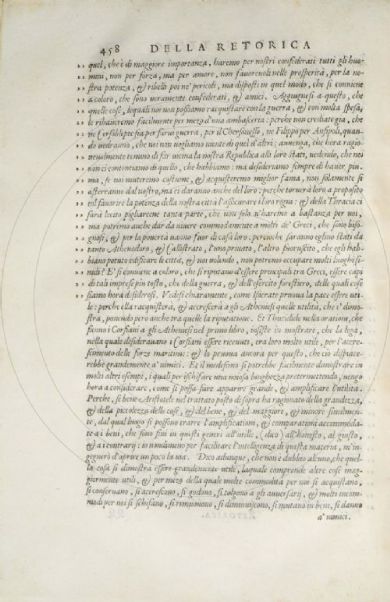 458 DELLA RETORICA
quel, che è di maggiore importanza, haremo per nostri confederati tutti gli huo-
mini, non per forza, ma per amore, non favorevoli nelle prosperità, per la no-
stra potenza, & ribelli poi ne' pericoli, ma disposti in quel modo, che si conviene
a coloro, che sono veramente confederati, & amici. Aggiugnesi a questo, che
quelle cose, lequali noi non possiamo racquistare con la guerra, & con molta spesa,
le rihaveremo facilmente per mezo d'una ambasceria: perche non crediate già, che
ne Cersoblepte sia per far guerra, per il Chersonesso, ne Filippo per Anfipoli, quan-
do vedranno, che noi non vogliamo niente di quel d'altri: avvenga, che hora ragio-
nevolmente temino di far vicina la nostra Republica alli loro stati, vedendo, che noi
non ci contentiamo di quello, che habbiamo: ma desideriamo sempre di haver più.
ma, se noi muteremo costume, & acquisteremo miglior fama, non solamente si
asterranno dal nostro, ma ci daranno anche del loro: perche tornerà loro a proposito
col favorire la potenza della nostra città l'assicurare i loro regni: & della Tracia ci
sarà lecito pigliarcene tanta parte, che non solo n'haremo a bastanza per noi,
ma potremo anche dar da vivere commodamente a molti de' Greci, che sono biso-
gnosi, & per la povertà vanno fuor di casa loro: perioche saranno
tanto Athenodoro, & Callistrato, l'uno privato, l'altro fuoruscito, che egli hab-
biano potuto edificare le città, & noi volendo, non potremo occupare molti luoghi si-
mili? E' si conviene a coloro, che si riputano d'essere principali tra Greci, essere capi
di tali imprese più tosto, che della guerra, & dell'essercito forestiero, delle quali cose
siamo hora desiderosi. Vedesi chiaramente, come Isocrate prova la pace essere uti-
le: perche ella racquisterà, & accrescerà a gli Atheniesi quelle utilità, che e' dimo-
stra, ponendo però anche tra quelle la riputatione. Et Thucidide nella oratione, che
fecero i Corsiani a gli Atheniesi nel primo libro, insiste in mostrare, che la lega,
nella quale desideravano i Corsiani essere ricevuti, era loro molto utile, per l'accre-
scimento delle forze maritime: & la provava ancora per questo, che ciò dispiace-
rebbe grandemente a' nimici. Et il medesimo si potrebbe facilmente dimostrare in
molti altri esempi, i quali per ischifare una noiosa lunghezza pretermettendo, vengo
hora a considerare, come si possa fare apparire grande, & amplificare l'utilità.
Perche, se bene Aristotele nel trattato posto di sopra ha ragionato della grandezza,
& della piccolezza delle cose, & del bene, & del maggiore, & minore similmen-
te, dal qual luogo si possono trarre l'amplificationi, & comparationi accommoda-
te a i beni, che sono fini in questi generi all'utile, (dico) all'honesto, al giusto,
& a i contrarij: io nondimeno per facilitare l'intelligenza di questa materia, m'in-
gegnerò d'aprire un poco la via. Dico adunque, che non è dubbio alcuno, che quel-
la cosa si dimostra essere grandemente utile, laquale comprende altre cose mag-
giormente utili, & per mezo della quale molte commodità per noi si acquistano,
si conservano, si accrescono, si godono, si tolgono a gli avversarij, & molti incom-
modi per noi si schifano, si rimuovono, si diminuiscono, si mutano in beni, si danno
a' nimici.